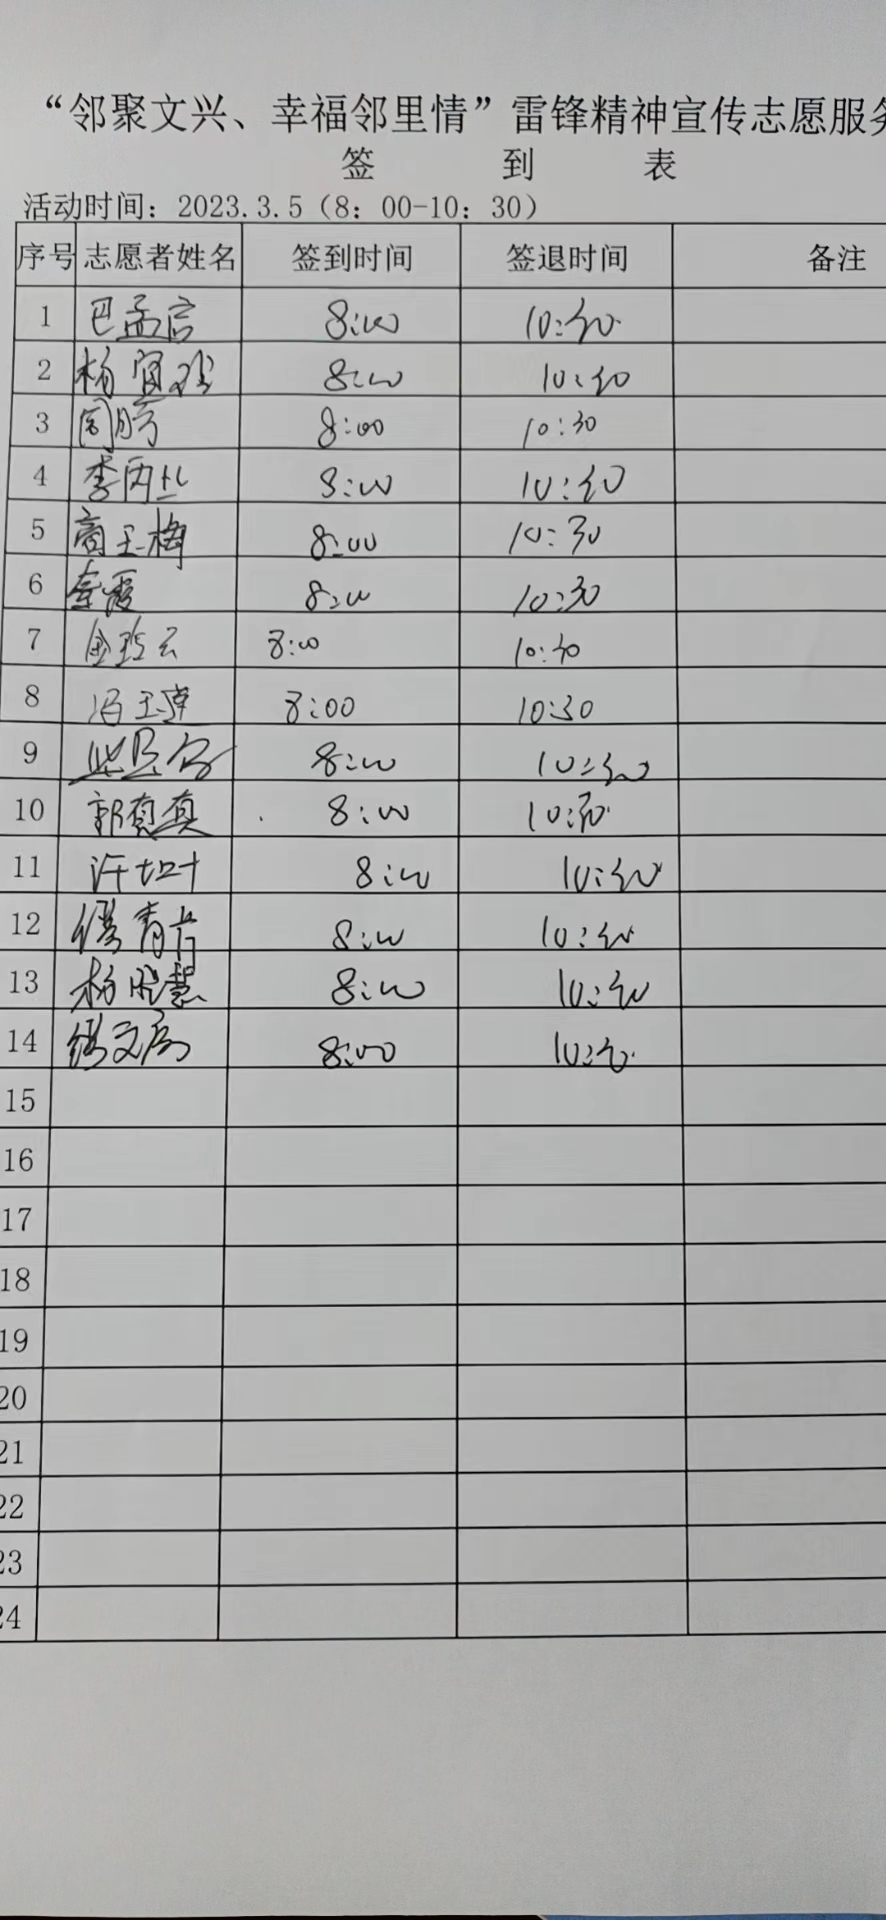 “邻聚文兴、幸福邻里情”雷锋精神宣传志愿服务
签 到 表
活动时间：2023.3.5（8：00-10：30）
序号 志愿者姓名 签到时间 签退时间 备注
1 巴孟宫 8:00 10:30
2 杨 8:00 10:30
3 周 8:00 10:30
4 李丙 8:00 10:30
5 商玉梅 8:00 10:30
6 秦霞 8:00 10:30
7 8:00 10:30
8 冯玉 8:00 10:30
9 8:00 10:30
10 郭真真 8:00 10:30
11 许 8:00 10:30
12 青 8:00 10:30
13 杨晓慧 8:00 10:30
14 文 8:00 10:30
15
16
17
18
19
20
21
22
23
24